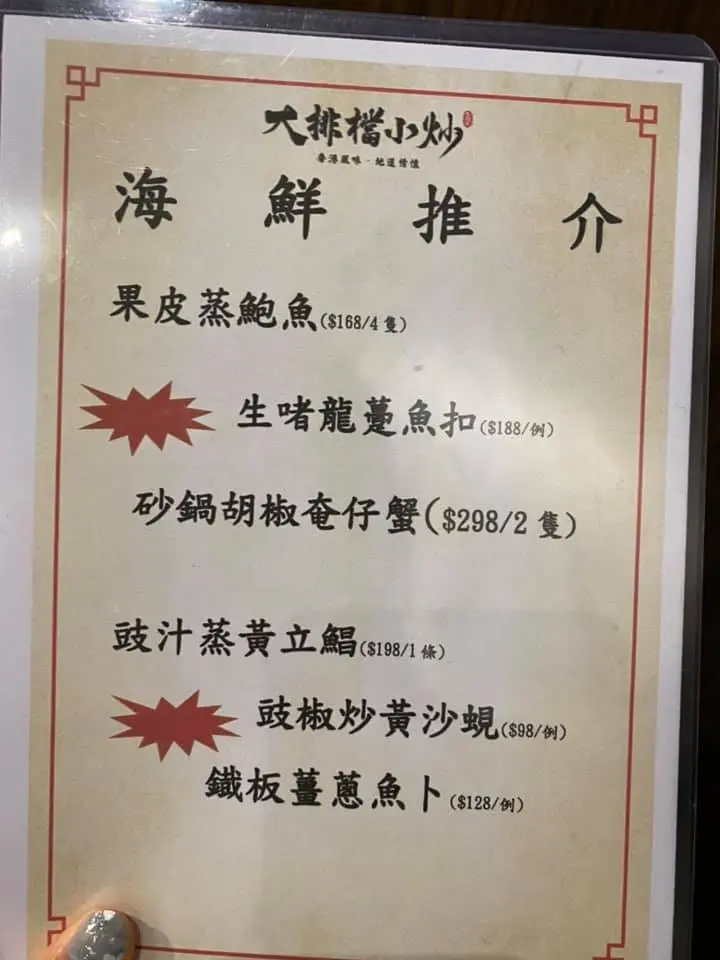 大排檔小炒
香港風味·地道情懷
海鮮推介
果皮蒸鮑魚($168/4隻)
生啫龍躉魚扣($188/例)
砂鍋胡椒奄仔蟹($298/2隻)
豉汁蒸黃立鯧($198/1條)
豉椒炒黃沙蜆($98/例)
鐵板薑蔥魚卜($128/例)